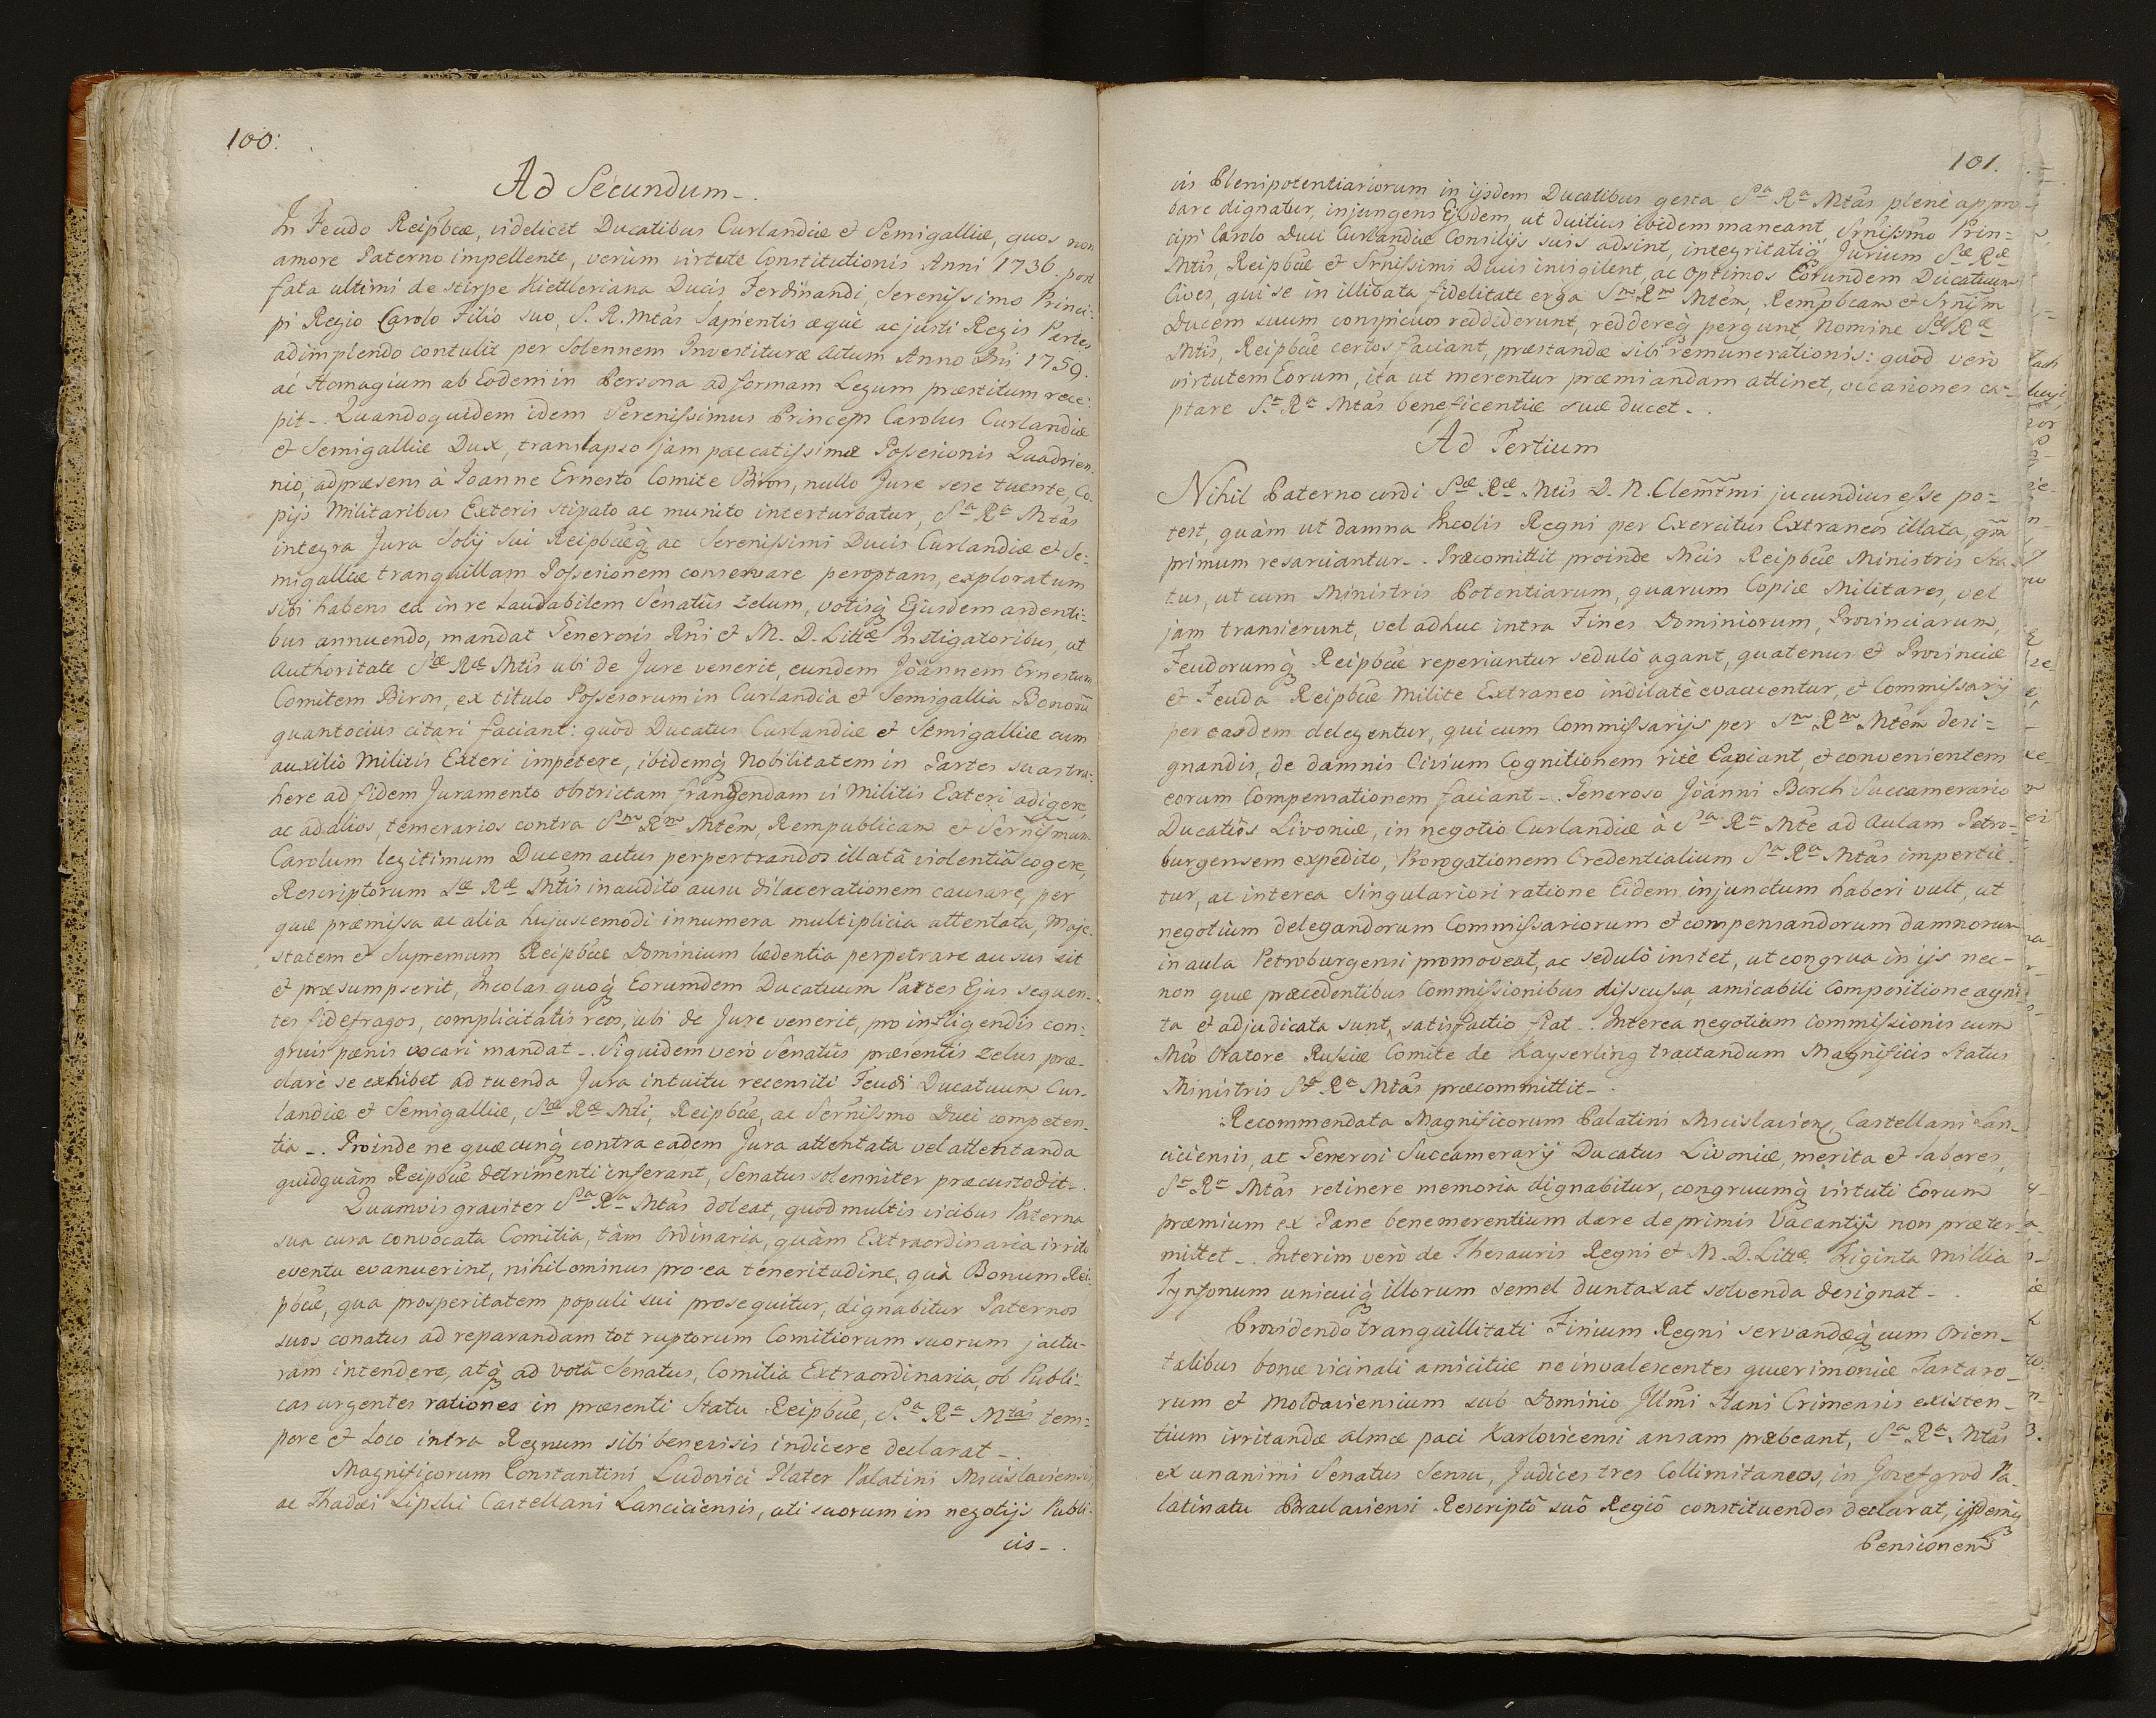 100.
Ad Secundum.
In Feudo Reipbcæ, videlicet Ducatibus Curlandiæ et Semigalliæ, quos non
amore Paterno impellente, verùm virtute Constitutionis Anni 1736. post
fata ultimi de stirpe Kiettleriana Ducis Ferdinandi, Serenissimo Princi-
pi Regio Carolo Filio suo, S. R. Mtas Sapientis æquè ac justi Regis Partes
adimplendo contulit per Solennem Investituræ Actum Anno Dni 1759.
ac Homagium ab Eodem in Persona ad formam Legum præstitum rece-
pit. Quandoquidem idem Serenissimus Princeps Carolus Curlandiæ
et Semigalliæ Dux, translapso jam paccatissimæ Possesionis Quadrien-
nio, ad præsens à Joanne Ernesto Comite Biron, nullo Jure sese tuente, Co-
pijs Militaribus Exteris stipato ac munito interturbatur, Sa Ra Mtas
integra Jura Solij Sui Reipbcæq ac Serenissimi Ducis Curlandiæ et Se-
migalliæ tranquillam Possesionem conservare peroptans, exploratum
sibi habens ea in re Laudabilem Senatûs Zelum, votisq Ejusdem ardenti-
bus annuendo, mandat Generosis Rni et M. D. Littæ Instigatoribus, ut
Authoritate Sæ Ræ Mtis ubi de Jure venerit, eundem Joannem Ernestum
Comitem Biron, ex titulo Possesorum in Curlandia et Semigallia Bonorũ
quantocius citari faciant: quòd Ducatus Curlandiæ et Semigalliæ cum
auxilio Militis Exteri impetere, ibidemq Nobilitatem in Partes suas tra-
here ad fidem Juramento obstrictam frangendam vi Militis Exteri adigere,
ac ad alios temerarios contra Sm Rm Mtem, Rempublicam et Sernissmum
Carolum legitimum Ducem actus perpertrandos illatâ violentiâ cogere,
Rescriptorum Sæ Ræ Mtis inaudito ausu dilacerationem causare, per
quæ præmissa ac alia hujuscemodi innumera multiplicia attentata, Maje-
statem et Supremum Reipbcæ Dominium lædentia perpetrare ausus sit
et præsumpserit, Incolas quoq Eorumdem Ducatuum Partes Ejus sequen-
tes fidefragos, complicitatis reos, ubi de Jure venerit, pro infligendis con-
gruis pænis vocari mandat. Siquidem verò Senatûs præsentis Zelus præ-
clarè se exhibet ad tuenda Jura intuitu recensiti Feudi Ducatuum Cur-
landiæ et Semigalliæ, Sæ Ræ Mti, Reipbcæ, ac Sernissmo Duci competen-
tia. Proinde ne quæcunq contra eadem Jura attentata vel attentanda
quidquam Reipbcæ detrimenti inferant, Senatus solenniter præcustodit.
Quamvis graviter Sa Ra Mtas doleat, quod multis vicibus Paterna
sua cura convocata Comitia, tàm Ordinaria, quàm Extraordinaria irrito
eventu evanuerint, nihilominus pro ea teneritudine, quà Bonum Rei-
pbcæ, qua prosperitatem populi sui prosequitur, dignabitur Paternos
suos conatus ad reparandam tot ruptorum Comitiorum suorum jactu-
ram intendere, atq ad vota Senatus, Comitia Extraordinaria, ob Publi-
cas urgentes rationes in præsenti Statu Reipbcæ, Sa Ra Mtas tem-
pore et Loco intra Regnum sibi benevisis indicere declarat.
Magnificorum Constantini Ludovici Plater Palatini Mscislaviensis
ac Thadæi Lipski Castellani Lanciciensis, uti suorum in negotijs Publi-
cis.
101.
cis Plenipotentiariorum in ijsdem Ducatibus gesta Sa Ra Mtas plenè appro-
bare dignatur, injungens Ejsdem, ut diutius ibidem maneant, Srnissmo Prin-
cipi Carolo Duci Curlandiæ Consilijs suis adsint, integritatiq Jurium Sæ Ræ
Mtis, Reipbcæ et Srnissimi Ducis invigilent, ac Optimos Eorundem Ducatuum
Cives, qui se in illibata fidelitate erga Sm Rm Mtem, Rempbcam et Srnism
Ducem suum conspicuos reddiderunt, reddereq pergunt Nomine Sæ Ræ
Mtis, Reipbcæ certos faciant, præstandæ sibi remunerationis: quod verò
virtutem Eorum, ita ut merentur præmiandam attinet, occasiones ca-
ptare Sa Ra Mtas beneficentiæ suæ ducet.
Ad Tertium
Nihil Paterno cordi Sæ Ræ Mtis D. N. Clemtmi jucundius esse po-
test, quàm ut damna Incolis Regni per Exercitus Extraneos illata, qm
primum resarciantur. Præcomittit proinde Mcis Reipbcæ Ministris Sta-
tus, ut cum Ministris Potentiarum, quarum Copiæ Militares, vel
jam transierunt, vel adhuc intra Fines Dominiorum, Provinciarum,
Feudorumq Reipbcæ reperiuntur sedulò agant, quatenus et Provinciæ
et Feuda Reipbcæ Milite Extraneo indilatè evacuentur, et Commissarij
per easdem delegentur, qui cum Commissarijs per Sm Rm Mtem desi-
gnandis, de damnis Civium Cognitionem ritè Capiant, et convenientem
eorum Compensationem faciant. Generoso Joanni Borch Succamerario
Ducatûs Livoniæ, in negotio Curlandiæ à Sa Ra Mte ad Aulam Petro-
burgensem expedito, Prorogationem Credentialium Sa Ra Mtas impertie-
tur, ac interea singulariori ratione Eidem injunctum haberi vult, ut
negotium delegandorum Commissariorum et compensandorum damnorum
in aula Petroburgensi promoveat, ac sedulò instet, ut congrua in ijs nec-
non quæ præcedentibus Commissionibus disscussa, amicabili Compositione agni-
ta et adjudicata sunt, satisfactio fiat. Interea negotium Commissionis cum
Mco Oratore Russiæ Comite de Kayserling tractandum Magnificis Status
Ministris Sa Ra Mtas præcommittit.
Recommendata Magnificorum Palatini Mscislavien, Castellani Lan-
ciciensis, ac Generosi Succamerarij Ducatus Livoniæ, merita et labores,
Sa Ra Mtas retinere memoria dignabitur, congruumq virtuti Eorum
præmium ex Pane benemerentium dare de primis Vacantijs non præter-
mittet. Interim verò de Thesauris Regni et M. D. Littæ Triginta Millia
Tynfonum unicuiq illorum semel duntaxat solvenda designat.
Providendo tranquillitati Finium Regni servandæq cum Orien-
talibus bonæ vicinali amicitiæ ne invalescentes quærimoniæ Tartaro-
rum et Moldaviensium sub Dominio Illmi Hani Crimensis existen-
tium irritandæ almæ paci Karlovicensi ansam præbeant, Sa Ra Mtas
ex unanimi Senatus Sensu, Judices tres Collimitaneos, in Jozefgrod Pa-
latinatu Braclaviensi Rescriptô suô Regiô constituendos declarat, ijsdemq
Pensionem